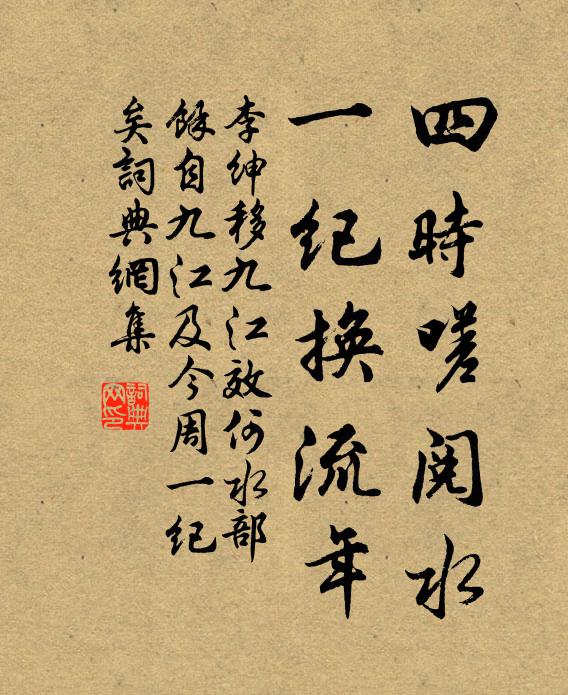 四時嗟閱水
一纪換流年
李紳移九江效何水部
餘自九江及今周一紀
矣詞典網集
詞典
网印